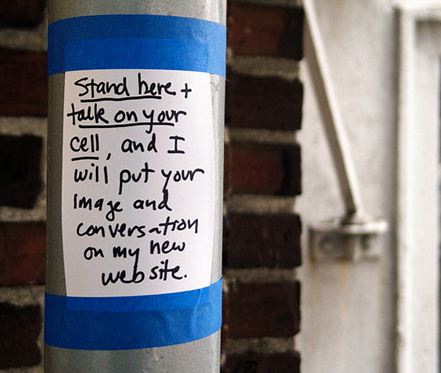 Stand here +
talk on your
cell, and I
will put your
Image and
conversation
on my new
web site.